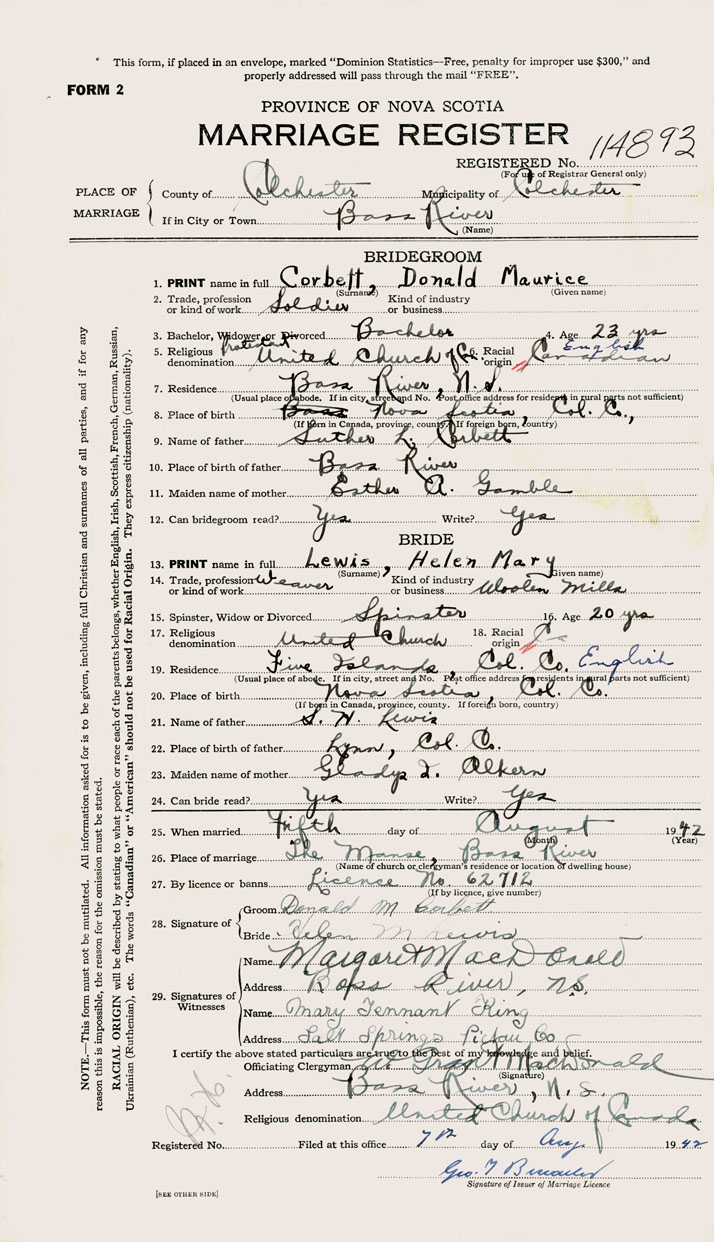 This form, if placed in an envelope, marked "Dominion Statistics—Free, penalty for improper use $300," and
properly addressed will pass through the mail "FREE".
FORM 2
PROVINCE OF NOVA SCOTIA
MARRIAGE REGISTER
REGISTERED No. 114893
(For use of Registrar General only)
PLACE OF MARRIAGE
County of Colchester Municipality of Colchester
If in City or Town Bass River
(Name)
BRIDEGROOM
1. PRINT name in full Corbett, Donald Maurice
(Surname) (Given name)
2. Trade, profession or kind of work Soldier Kind of industry or business
3. Bachelor, Widower or Divorced Bachelor 4. Age 23 yrs
5. Religious denomination Protestant United Church of Ca. Racial origin Canadian English
7. Residence Bass River, N.S.
(Usual place of abode. If in city, street and No. Post office address for residents in rural parts not sufficient)
8. Place of birth Bass Nova Scotia, Col. Co.,
(If born in Canada, province, county. If foreign born, country)
9. Name of father Luther L. Corbett
10. Place of birth of father Bass River
11. Maiden name of mother Esther A. Gamble
12. Can bridegroom read? Yes Write? Yes
BRIDE
13. PRINT name in full Lewis, Helen Mary
(Surname) (Given name)
14. Trade, profession or kind of work Weaver Kind of industry or business Woolen Mills
15. Spinster, Widow or Divorced Spinster 16. Age 20 yrs
17. Religious denomination United Church 18. Racial origin
19. Residence Five Islands, Col. Co. English
(Usual place of abode. If in city, street and No. Post office address for residents in rural parts not sufficient)
20. Place of birth Nova Scotia, Col. Co.
(If born in Canada, province, county. If foreign born, country)
21. Name of father S. H. Lewis
22. Place of birth of father Lynn, Col. Co.
23. Maiden name of mother Gladys I. Alkern
24. Can bride read? Yes Write? Yes
25. When married Fifth day of August 1942
(Month) (Year)
26. Place of marriage The Manse, Bass River
(Name of church or clergyman's residence or location of dwelling house)
27. By licence or banns Licence No. 62712
(If by licence, give number)
28. Signature of
Groom Donald M Corbett
Bride Helen M Lewis
29. Signatures of Witnesses
Name Margaret MacDonald
Address Bass River, N.S.
Name Mary Tennant King
Address Salt Springs Pictou Co
I certify the above stated particulars are true to the best of my knowledge and belief.
Officiating Clergyman Grant MacDonald
(Signature)
Address Bass River, N.S.
Religious denomination United Church of Canada
Registered No. Filed at this office 7th day of Aug. 1942
Geo. T
Signature of Issuer of Marriage Licence
[SEE OTHER SIDE]
NOTE.—This form must not be mutilated. All information asked for is to be given, including full Christian and surnames of all parties, and if for any
reason this is impossible, the reason for the omission must be stated.
RACIAL ORIGIN will be described by stating to what people or race each of the parents belongs, whether English, Irish, Scottish, French, German, Russian,
Ukrainian (Ruthenian), etc. The words "Canadian" or "American" should not be used for Racial Origin. They express citizenship (nationality).